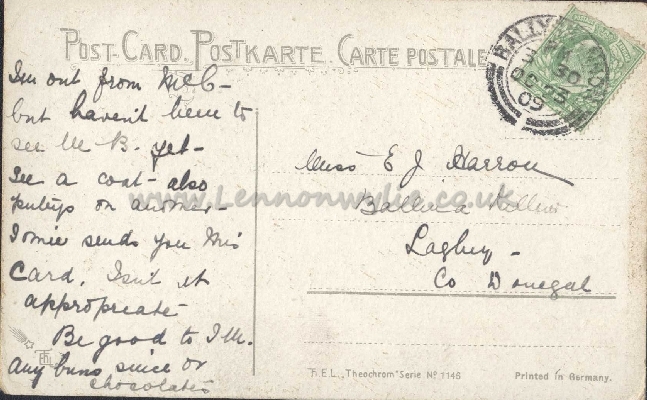 POST-CARD. POSTKARTE. CARTE POSTALE
I'm out from McC-
but haven't been to
see Mc B. yet-
See a coat- also
on
sends you this
Card. Isn't it
appropreate-
Be good to I.M.
any buns since or
chocolates
Miss E J Harron
Laghey-
Co Donegal
www.Lennonwylie.co.uk
OC 23
09
T.E.L. „Theochrom" Serie Nº 1146
Printed in Germany.